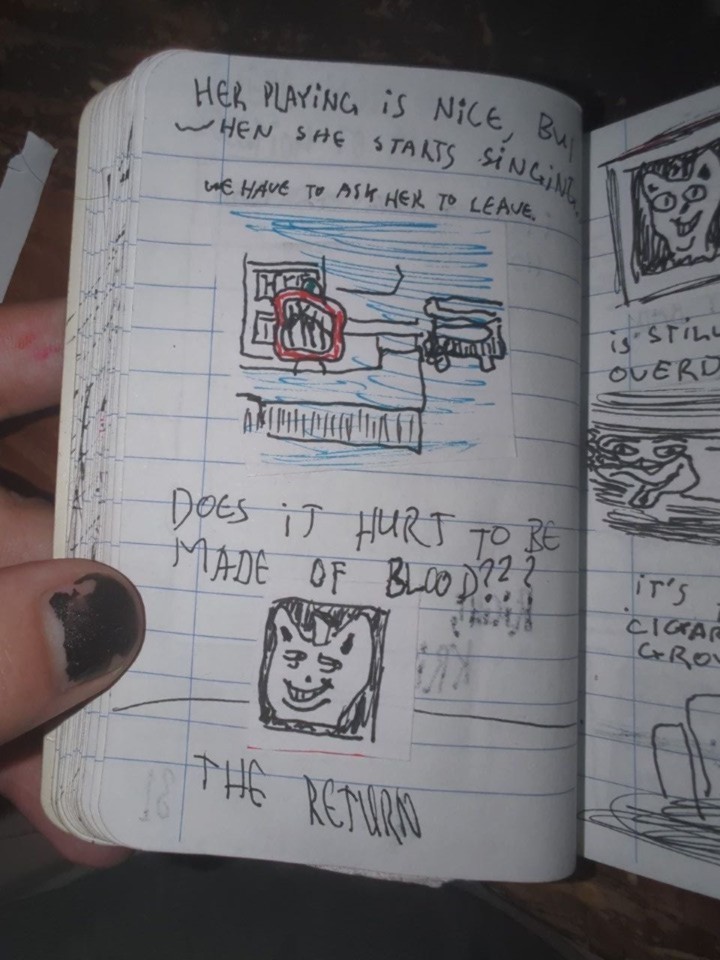 HER PLAYING iS NiCE, BUT
WHEN SHE STARTS SiNGiNG
WE HAVE TO ASK HER TO LEAVE.
DOES iT HURT TO BE
MADE OF BLOOD???
THE RETURN
iS STiLL
OVERD
iT'S
CIGAR
GROW